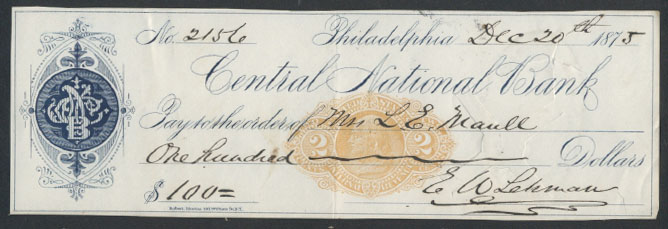 No. 2156 Philadelphia Dec 20th 1875
Central National Bank
Pay to the order of Mrs L. E. Maull
One hundred Dollars
$ 100= E W Lehman